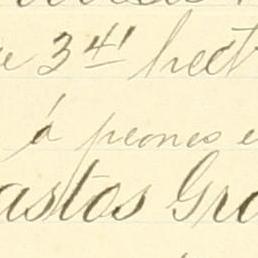 e 34' hect
á peones e
astos Gra